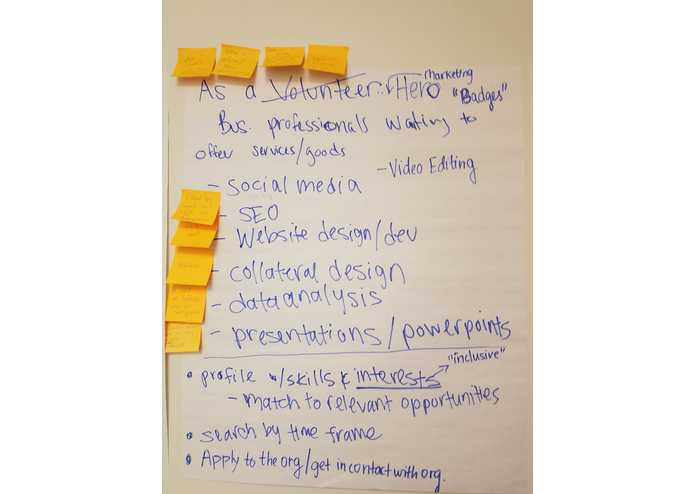 Marketing
As a Volunteer: Hero "Badges"
Bus. professionals waiting to
offer services/goods
- Video Editing
- social media
- SEO
- Website design/dev
- collateral design
- data analysis
- presentations/powerpoints
"inclusive"
• profile w/skills & interests
- match to relevant opportunities
• search by time frame
• Apply to the org/get in contact with org.